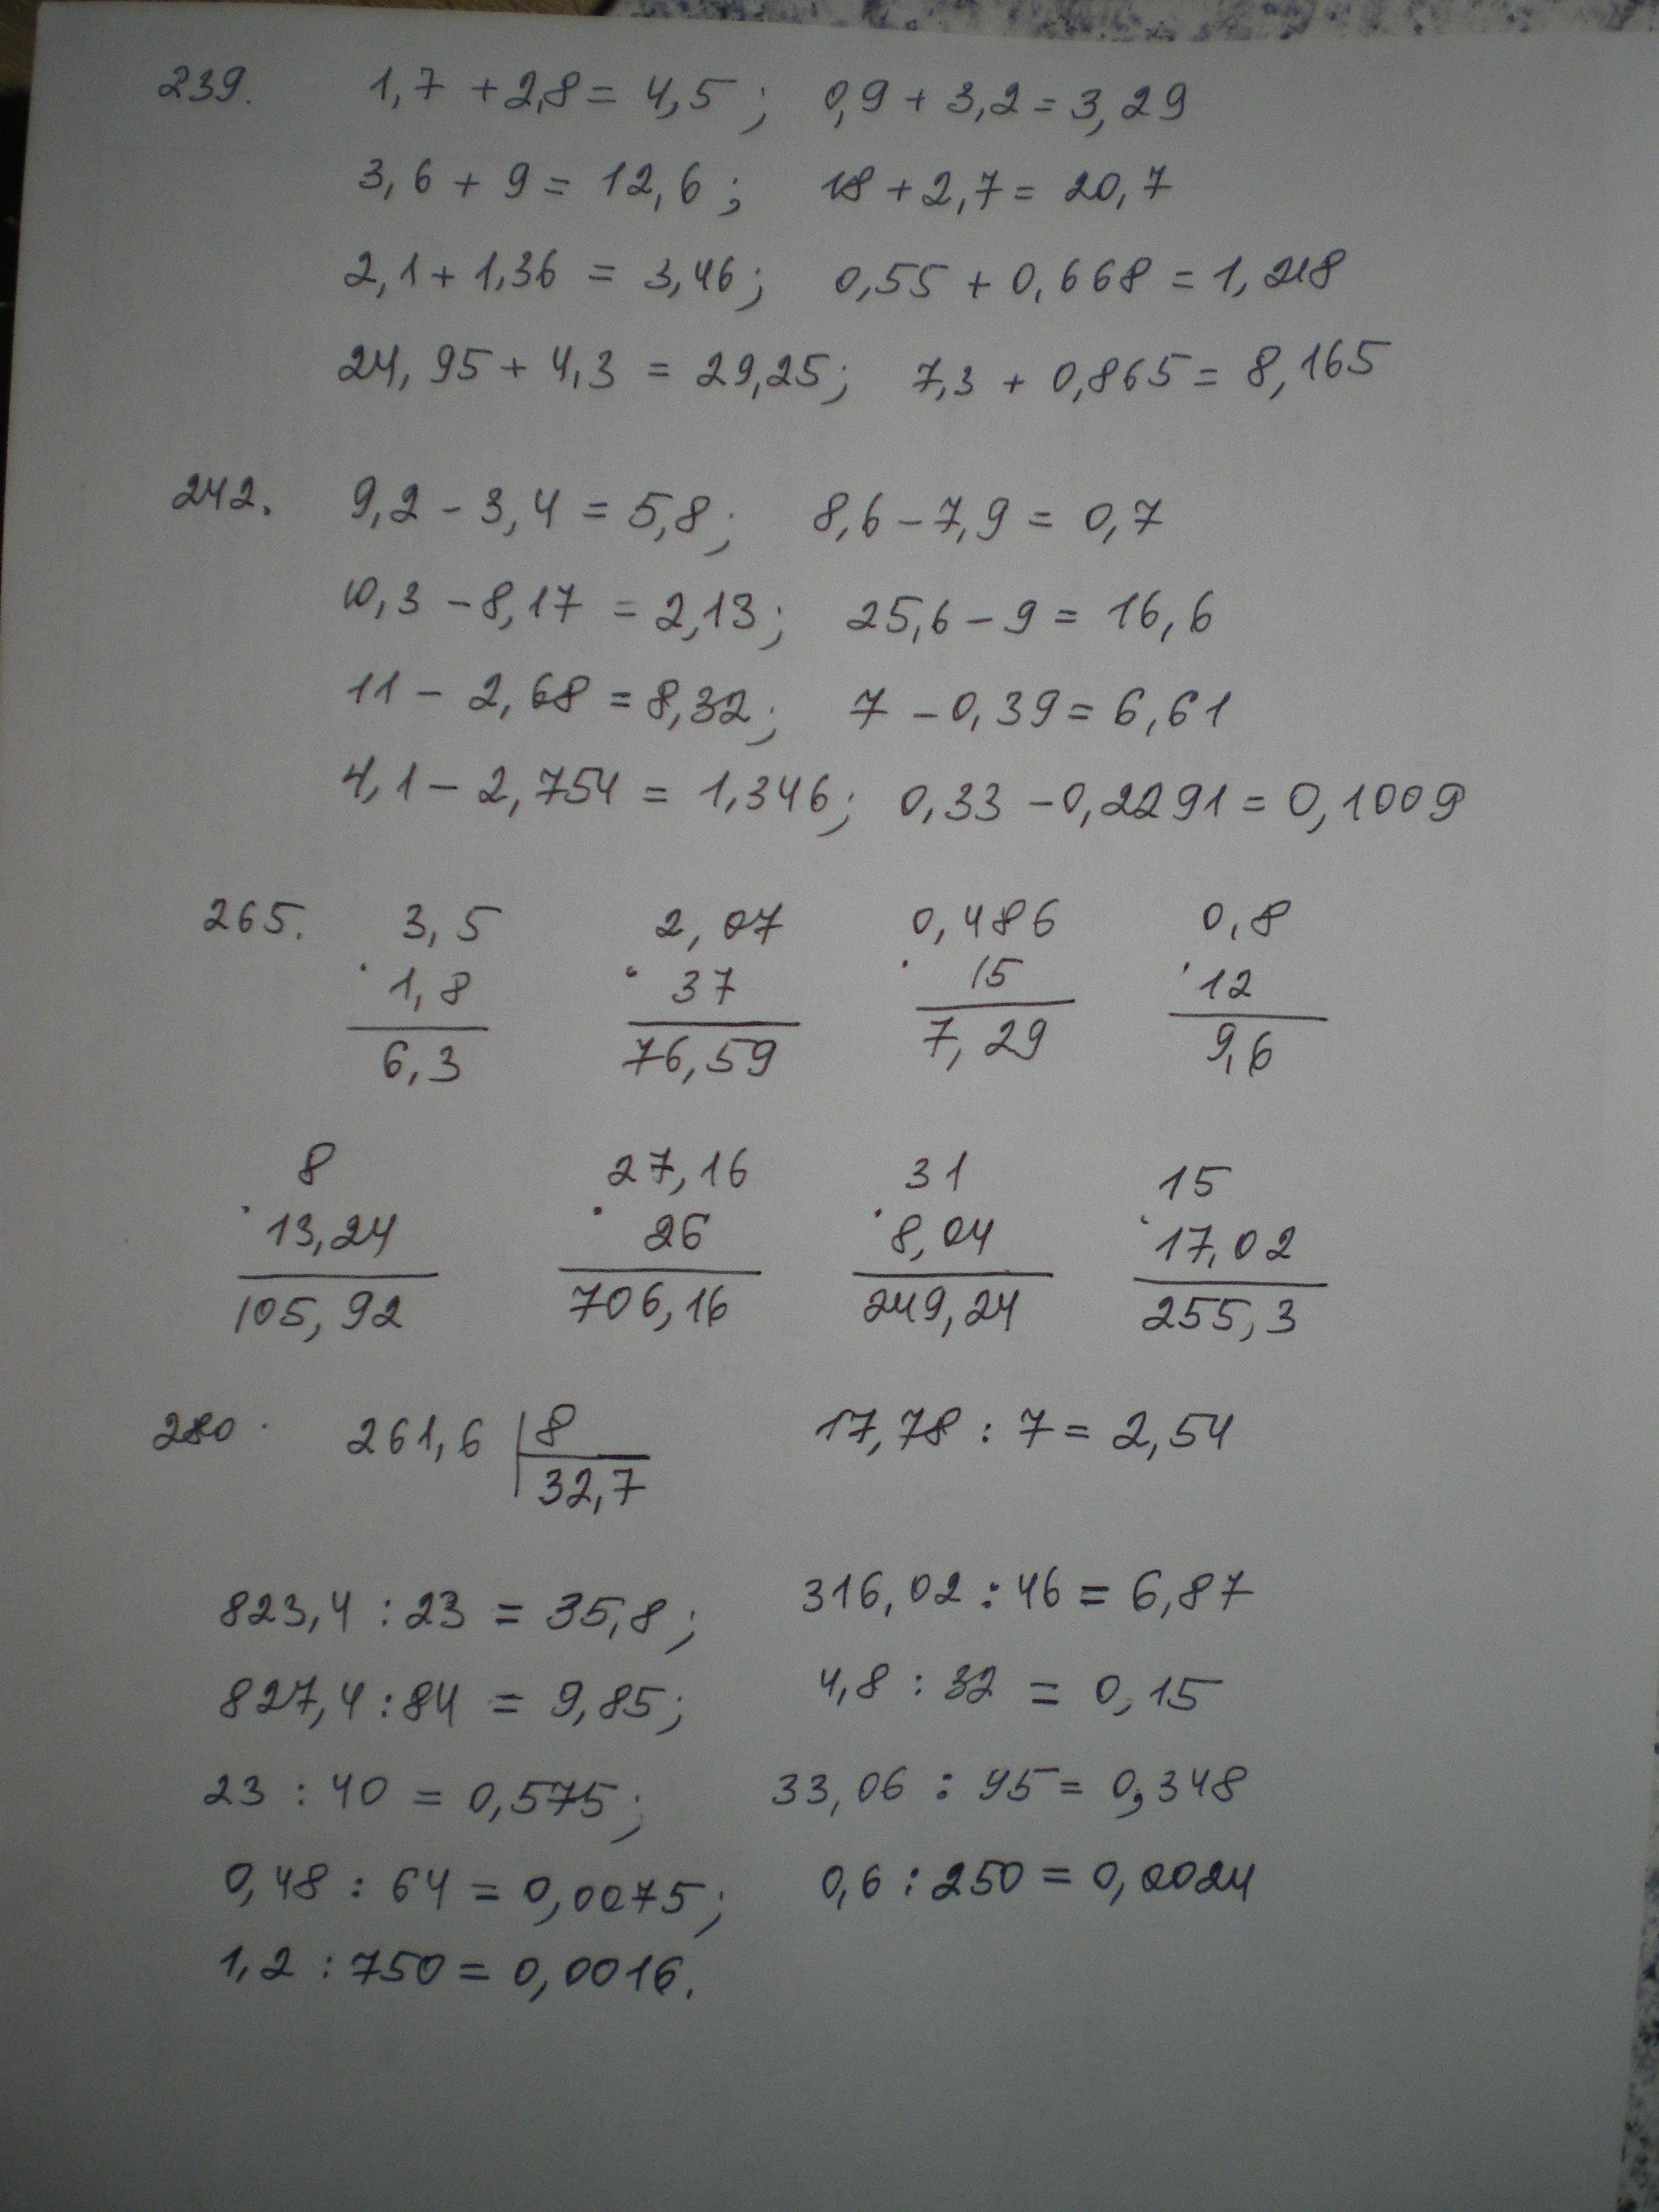 239. 1,7 + 2,8 = 4,5 ; 0,9 + 3,2 = 3,29
3,6 + 9 = 12,6 ; 18 + 2,7 = 20,7
2,1 + 1,36 = 3,46 ; 0,55 + 0,668 = 1,218
24,95 + 4,3 = 29,25 ; 7,3 + 0,865 = 8,165
242. 9,2 - 3,4 = 5,8 ; 8,6 - 7,9 = 0,7
10,3 - 8,17 = 2,13 ; 25,6 - 9 = 16,6
11 - 2,68 = 8,32 ; 7 - 0,39 = 6,61
4,1 - 2,754 = 1,346 ; 0,33 - 0,2291 = 0,1009
265. 3,5 2,07 0,486 0,8
· 1,8 · 37 · 15 · 12
6,3 76,59 7,29 9,6
8 27,16 31 15
· 13,24 · 26 · 8,04 · 17,02
105,92 706,16 249,24 255,3
280. 261,6 8 17,78 : 7 = 2,54
32,7
823,4 : 23 = 35,8 ; 316,02 : 46 = 6,87
827,4 : 84 = 9,85 ; 4,8 : 32 = 0,15
23 : 40 = 0,575 ; 33,06 : 95 = 0,348
0,48 : 64 = 0,0075 ; 0,6 : 250 = 0,0024
1,2 : 750 = 0,0016.